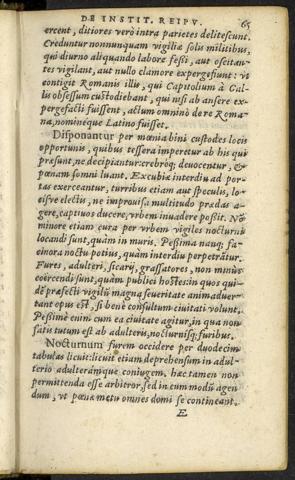 DE INSTIT. REIPV. 65
ercent, ditiores verò intra parietes delitescunt.
Creduntur nonnunquam vigiliæ solis militibus,
qui diurno aliquando labore fessi, aut oscitan-
tes vigilant, aut nullo clamore expergefiunt: vt
contigit Romanis illis, qui Capitolium à Gal
lis obsessum custodiebant, qui nisi ab ansere ex-
pergefacti fuissent, actum omninò de re Roma-
na, nomineque Latino fuisset.
Disponantur per mœnia bini custodes locis
opportunis, quibus tessera imperetur ab his qui
præsunt, ne decipiantur: crebròq; deuocentur, &
pœnam somni luant. Excubiæ interdiu ad por-
tas exerceantur, turribus etiam aut speculis, lo-
cisve electis, ne improuisa multitudo prædas a-
gere, captiuos ducere, vrbem inuadere possit. Nō
minore etiam cura per vrbem vigiles nocturni
locandi sunt, quàm in muris. Pessima nanq; fa-
cinora noctu potius, quàm interdiu perpetrātur.
Fures, adulteri, sicarij, grassatores, non minùs
coërcendi sunt, quàm publici hostes: in quos qui-
dē præfecti vigilū magna seueritate animaduer-
tant opus est, si benè consultum ciuitati volunt.
Pessimè enim cum ea ciuitate agitur, in qua non
satis tutum est ab adulteris, nocturnisq; furibus.
Nocturnum furem occidere per duodecim
tabulas licuit: licuit etiam deprehensum in adul-
terio adulterámque coniugem. hæc tamen non
permittenda esse arbitror, sed in eum modū agen
dum, vt pœnæ metu omnes domi se contineant.
E